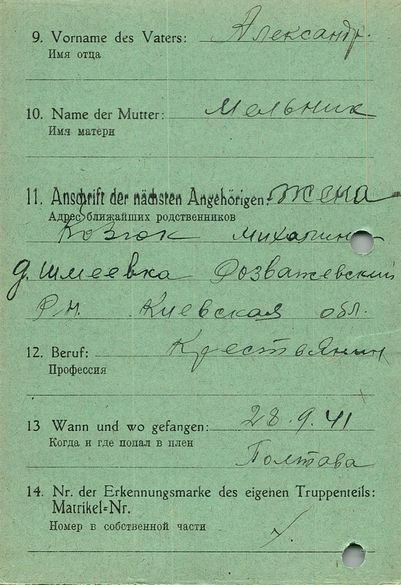 9. Vorname des Vaters: Александр.
Имя отца
10. Name der Mutter: Мельник
Имя матери
11. Anschrift der nächsten Angehörigen: Жена
Адрес ближайших родственников
Козюк Михалина
д. Шмеевка Розважевский
Р-н. Киевская обл.
12. Beruf: Крестьянин
Профессия
13 Wann und wo gefangen: 28.9.41
Когда и где попал в плен
Полтава
14. Nr. der Erkennungsmarke des eigenen Truppenteils:
Matrikel=Nr.
Номер в собственной части